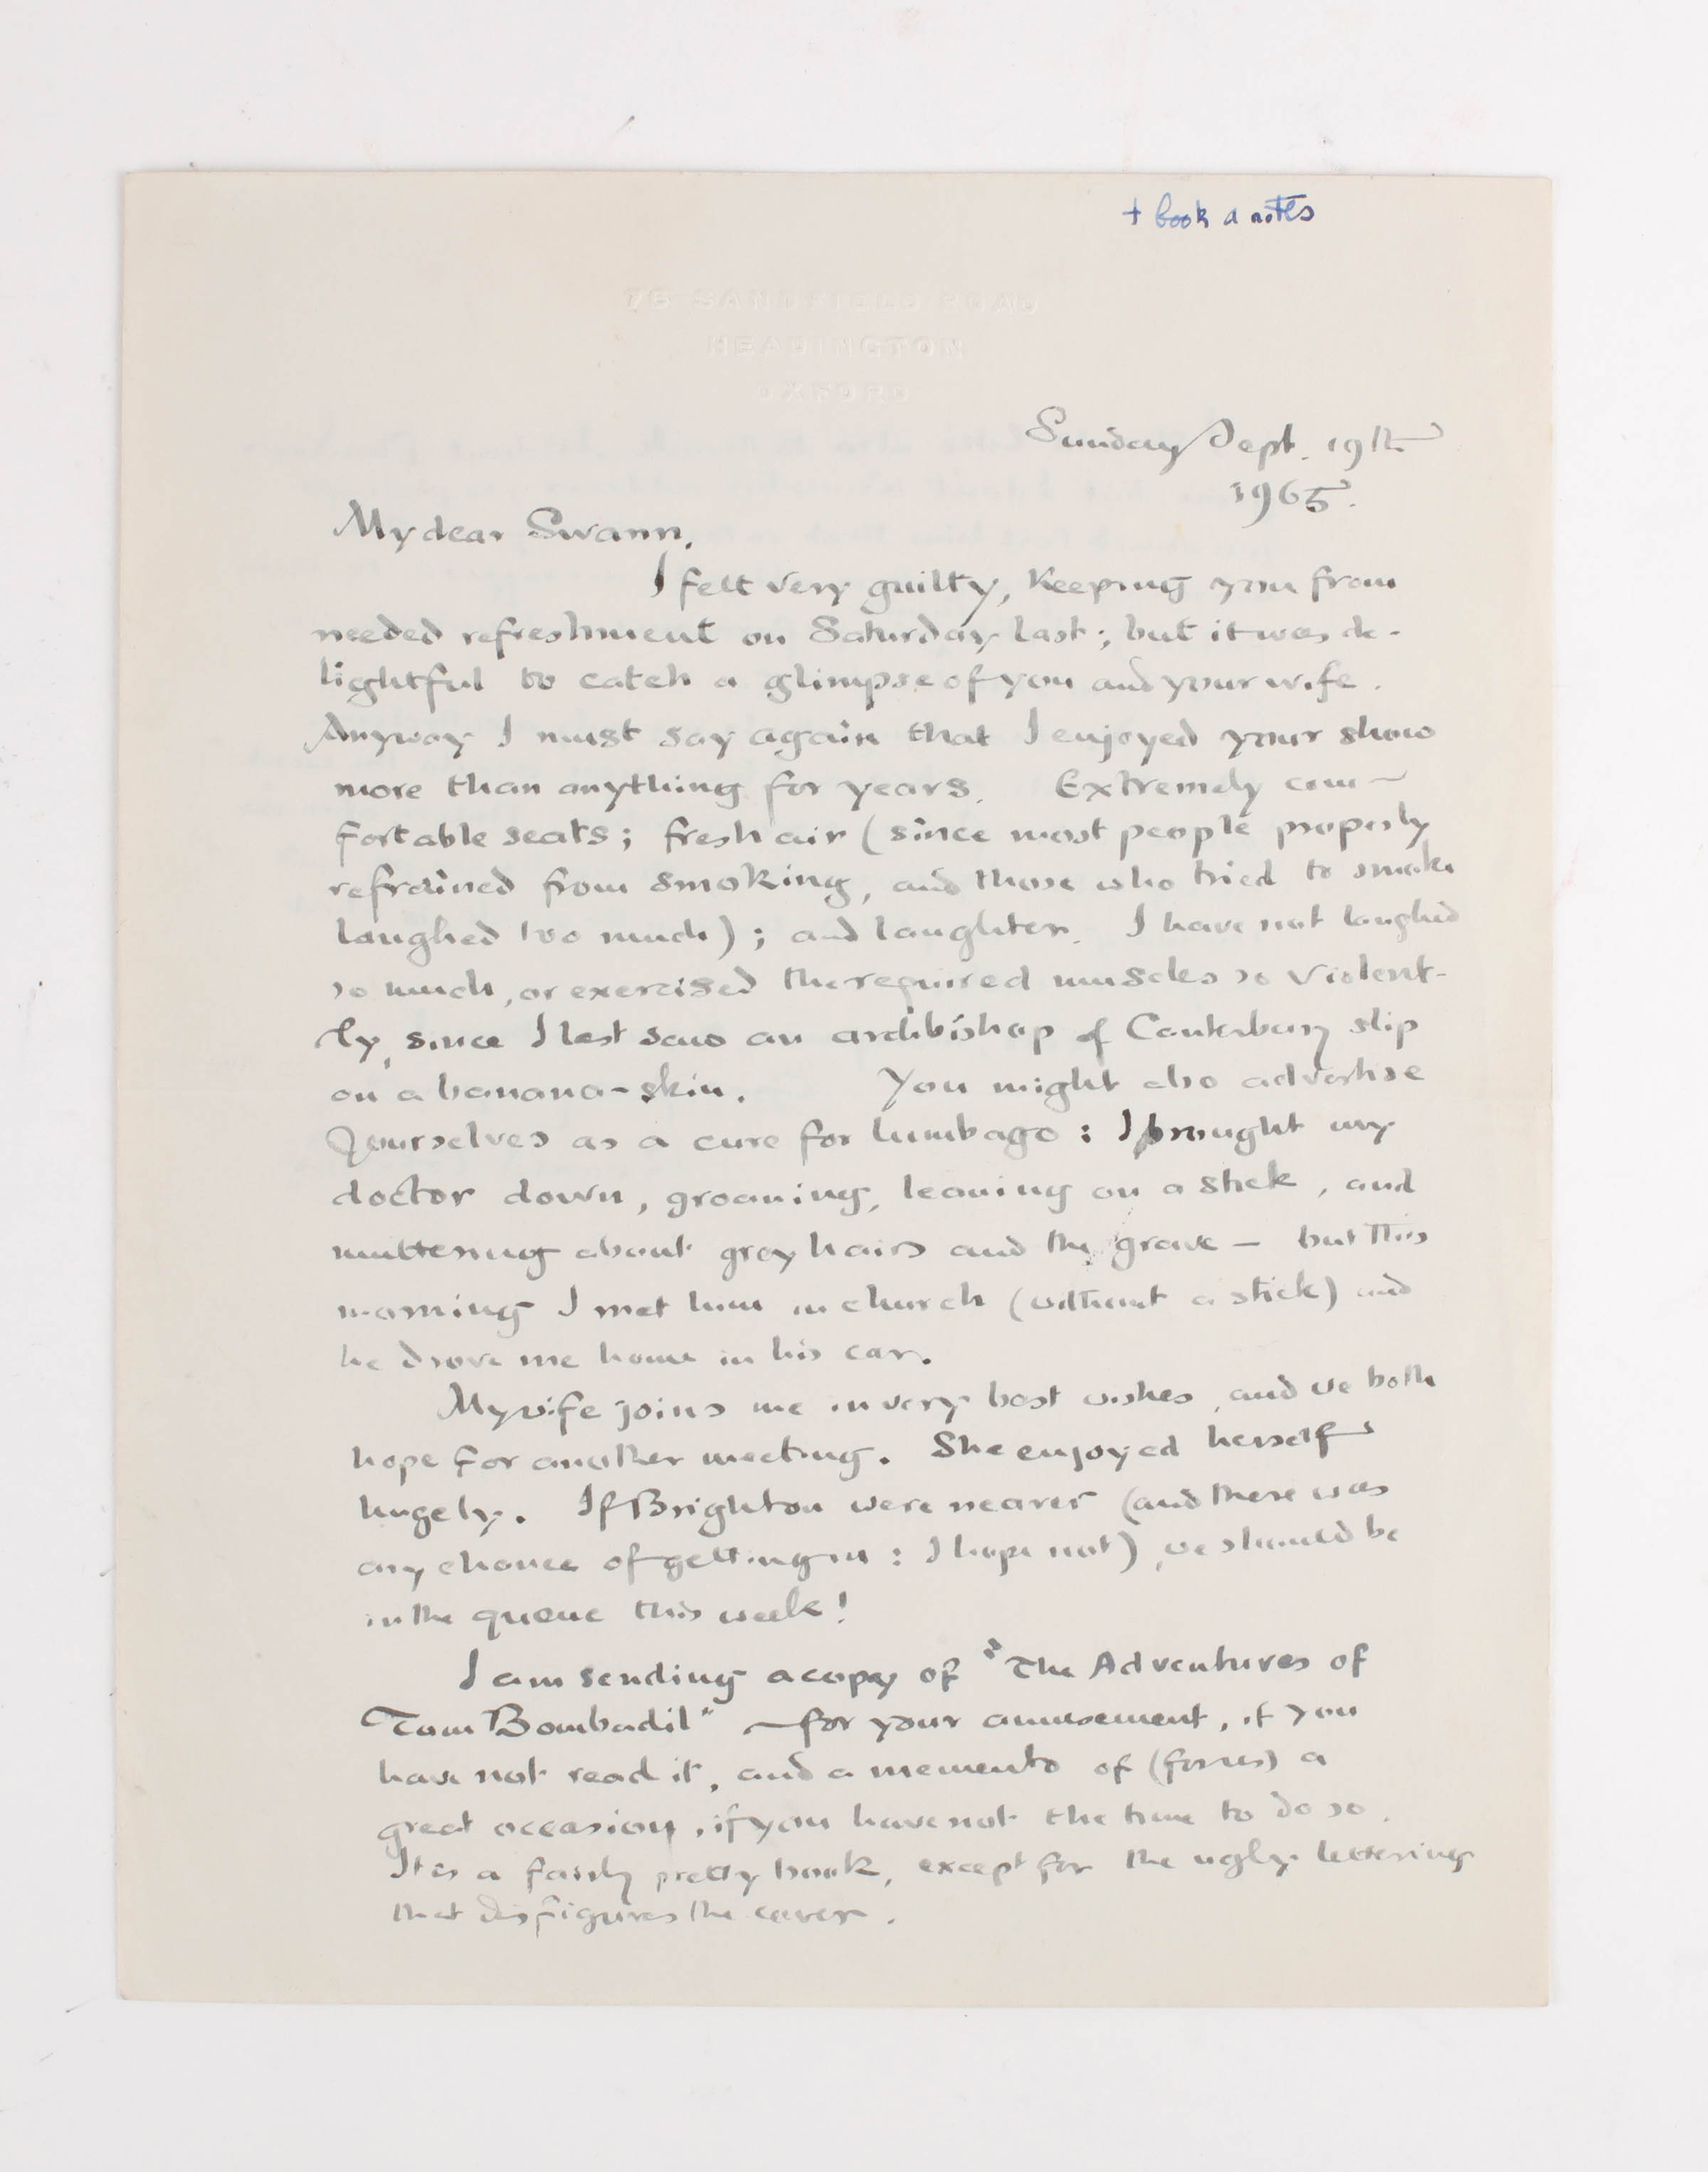 + book & notes
76 SANDFIELD ROAD
HEADINGTON
OXFORD
Sunday Sept. 19th
1965.
My dear Swann,
I felt very guilty, keeping you from
needed refreshment on Saturday last; but it was de-
lightful to catch a glimpse of you and your wife.
Anyway I must say again that I enjoyed your show
more than anything for years. Extremely com-
fortable seats; fresh air (since most people properly
refrained from smoking, and those who tried to smoke
laughed too much); and laughter. I have not laughed
so much, or exercised the required muscles so violent-
ly, since I last saw an archbishop of Canterbury slip
on a banana-skin. You might also advertise
yourselves as a cure for lumbago: I brought my
doctor down, groaning, leaning on a stick, and
muttering about grey hairs and the grave – but this
morning I met him in church (without a stick) and
he drove me home in his car.
My wife joins me in very best wishes, and we both
hope for another meeting. She enjoyed herself
hugely. If Brighton were nearer (and there was
any chance of getting in: I hope not), we should be
in the queue this week!
I am sending a copy of "The Adventures of
Tom Bombadil" – for your amusement, if you
have not read it, and a memento of (for us) a
great occasion, if you have not the time to do so.
It is a fairly pretty book, except for the ugly lettering
that disfigures the cover.